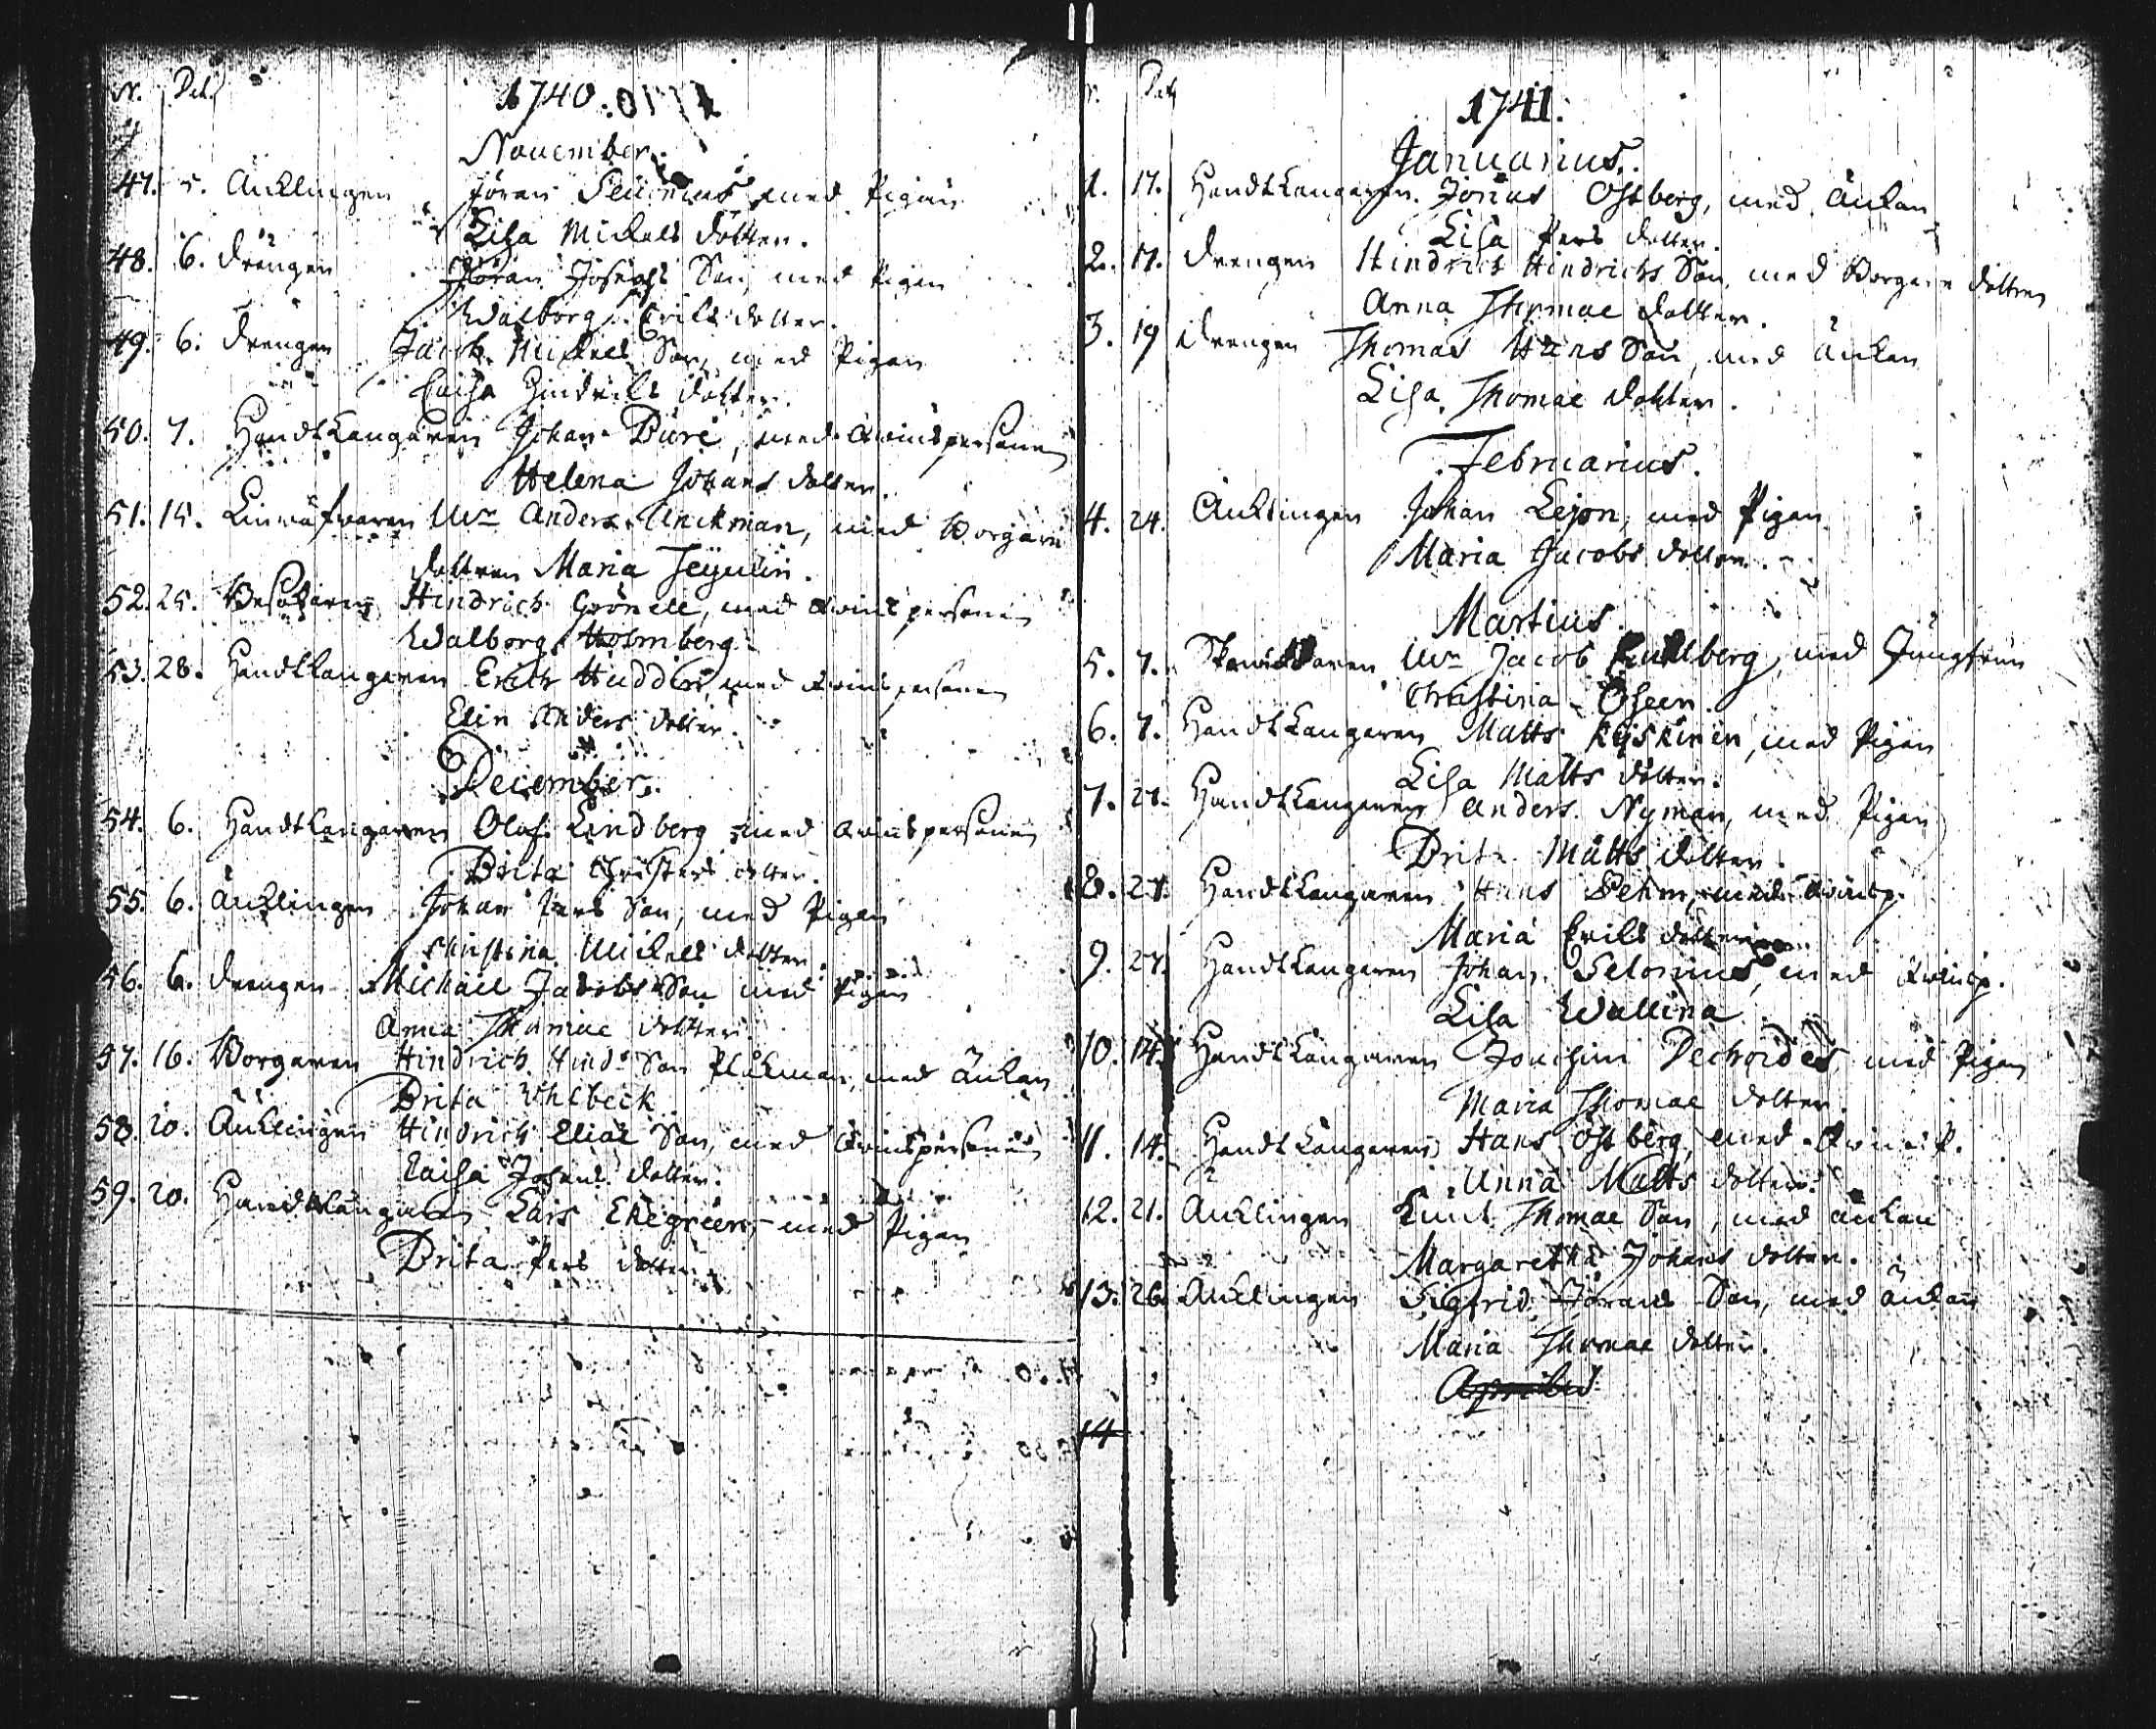 N. Dat.
1740.
November.
47. 5. Änklingen Jöran Seuonius med Pigan
Lisa Mickels dotter.
48. 6. drengen Jöran Josephs Son, med Pigan
Walborg Erils dotter.
49. 6. drengen Jacob Mickels Son, med Pigan
Caisa Hindrils dotter.
50. 7. Handtlangaren Johan Bure, med Qvinspersonen
Helena Johans dotter.
51. 15. Linwäfvaren Mr Anders Unckman, med Borgare
dottren Maria Teÿulin.
52. 25. Besökaren Hindrich Grönell, med Qvinspersonen
Walborg Holmberg.
53. 28. Handtlangaren Erich Hudder, med Qvinspersonen
Elin Anders dotter.
December.
54. 6. Handtlangaren Olof Lindberg med Qvinspersonen
Brita Christers dotter.
55. 6. änklingen Johan Pers Son, med Pigan
Christina Mickels dotter.
56. 6. drengen Michael Jacobs Son med Pigan
Anna Thomae dotter.
57. 16. Borgaren Hindrich Hind: Son Plukman, med Änkan
Brita Uhlbeck
58. 20. Änklingen Hindrich Eliae Son, med Qvinspersonen
Caisa Johans dotter.
59. 20. Handtlangaren Lars Ekegreen, med Pigan
Brita Pers dotter.
N. Dat.
1741.
Januarius.
1. 17. Handtlangaren Jonas Östberg, med Änkan
Lisa Pers dotter.
2. 17. drengen Hindrich Hindrichs Son, med Borgare dottren
Anna Thomae dotter.
3. 19 drengen Thomas Hans Son, med Änkan
Lisa Thomae dotter.
Februarius.
4. 24. Änklingen Johan Lejon, med Pigan
Maria Jacobs dotter.
Martius.
5. 7. Mr Jacob med Jungfrun
Christina Oseen.
6. 7. Handtlangaren Matts Ryskinen, med Pigan
Lisa Matts dotter.
7. 27. Handtlangaren Anders Nyman, med Pigan
Brita Matts dotter.
8. 27. Handtlangaren Hans Behm, med Qvinsp.
Maria Erils dotter.
9. 27. Handtlangaren Johan Selonius, med Qvinsp.
Lisa Wallina
10. 14. Handtlangaren Joachim Dechordes, med Pigan
Maria Thomae dotter.
11. 14. Handtlangaren Hans Östberg, med Qvinsp.
Anna Matts dotter.
12. 21. Änklingen Knut Thomae Son, med änkan
Margaretha Johans dotter.
13. 26. Änklingen Sigfrid Jörans Son, med Änkan
Maria Thomae dotter.
Aprilis
14